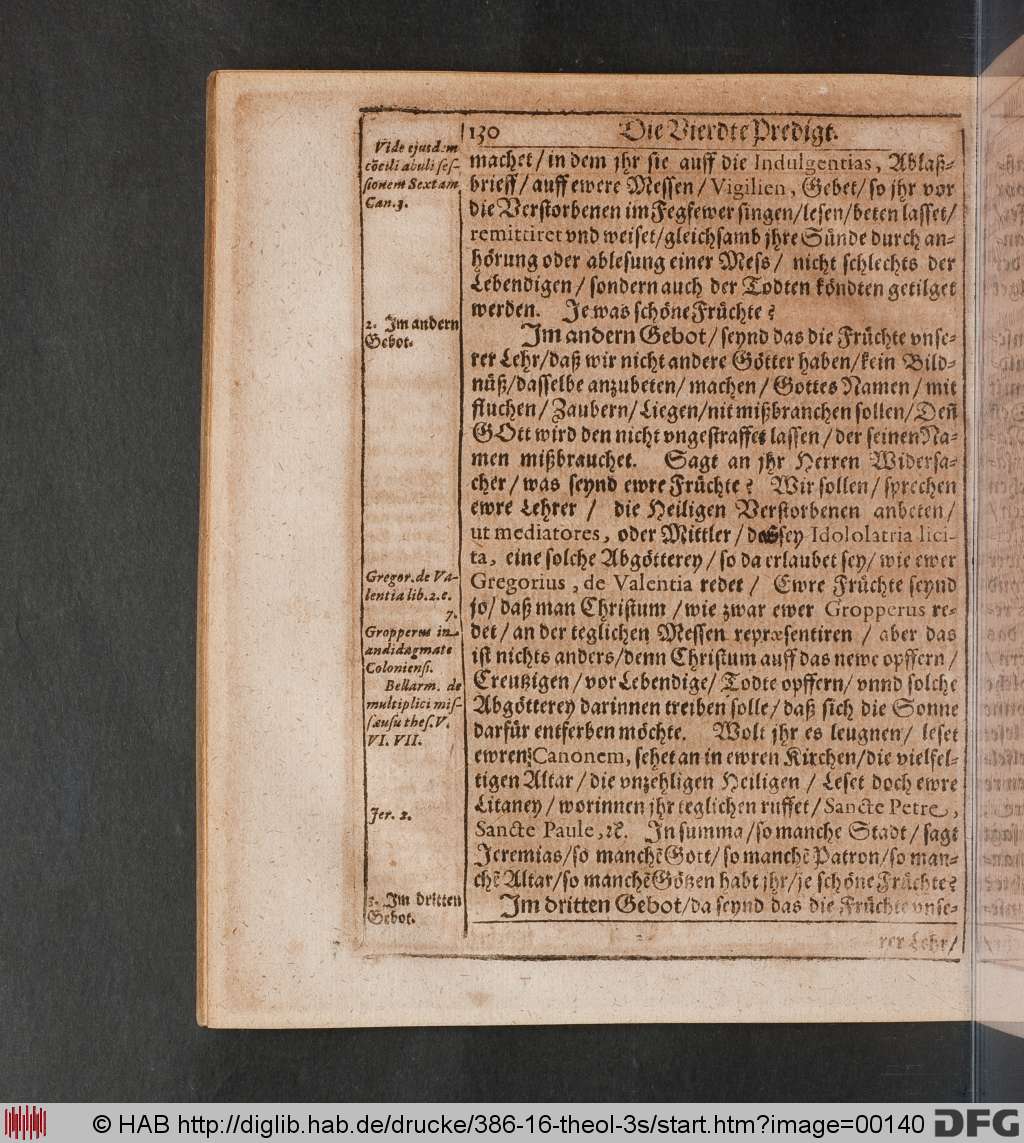 130 Die Vierdte Predigt.
Vide ejusdem
cõcili abuli ses-
sionem Sextam
Can. 3.
machet / in dem jhr sie auff die Indulgentias, Ablaß-
brieff / auff ewere Messen / Vigilien, Gebet / so jhr vor
die Verstorbenen im Fegfewer singen / lesen / beten lasset /
remittiret vnd weiset / gleichsamb jhre Sünde durch an-
hörung oder ablesung einer Mess / nicht schlechts der
Lebendigen / sondern auch der Todten köndten getilget
werden. Je was schöne Früchte?
2. Im andern
Gebot.
Im andern Gebot / seynd das die Früchte vnse-
rer Lehr / daß wir nicht andere Götter haben / kein Bild-
nüß / dasselbe anzubeten / machen / Gottes Namen / mit
fluchen / Zaubern / Liegen / nit mißbranchen sollen / Deñ
GOtt wird den nicht vngestraffet lassen / der seinen Na-
men mißbrauchet. Sagt an jhr Herren Widersa-
cher / was seynd ewre Früchte? Wir sollen / sprechen
ewre Lehrer / die Heiligen Verstorbenen anbeten /
ut mediatores, oder Mittler / das sey Idololatria lici-
ta, eine solche Abgötterey / so da erlaubet sey / wie ewer
Gregor. de Va-
lentia lib. 2. c.
7.
Gregorius, de Valentia redet / Ewre Früchte seynd
jo / daß man Christum / wie zwar ewer Gropperus re-
Gropperus in
andidagmate
Coloniensi.
det / an der teglichen Messen repræsentiren / aber das
ist nichts anders / denn Christum auff das newe opffern /
Bellarm. de
multiplici mis-
sæusu thes. V.
VI. VII.
Creutzigen / vor Lebendige / Todte opffern / vnnd solche
Abgötterey darinnen treiben solle / daß sich die Sonne
darfür entferben möchte. Wolt jhr es leugnen / leset
ewren Canonem, sehet an in ewren Kirchen / die vielfel-
tigen Altar / die vnzehligen Heiligen / Leset doch ewre
Litaney / worinnen jhr teglichen ruffet / Sancte Petre,
Jer. 2.
Sancte Paule, ꝛc. In summa / so manche Stadt / sagt
Jeremias / so manchẽ Gott / so manchẽ Patron / so man-
chẽ Altar / so manchẽ Götzen habt jhr / je schöne Früchte?
3. Im dritten
Gebot.
Im dritten Gebot / da seynd das die Früchte vnse-
rer Lehr /
© HAB http://diglib.hab.de/drucke/386-16-theol-3s/start.htm?image=00140 DFG